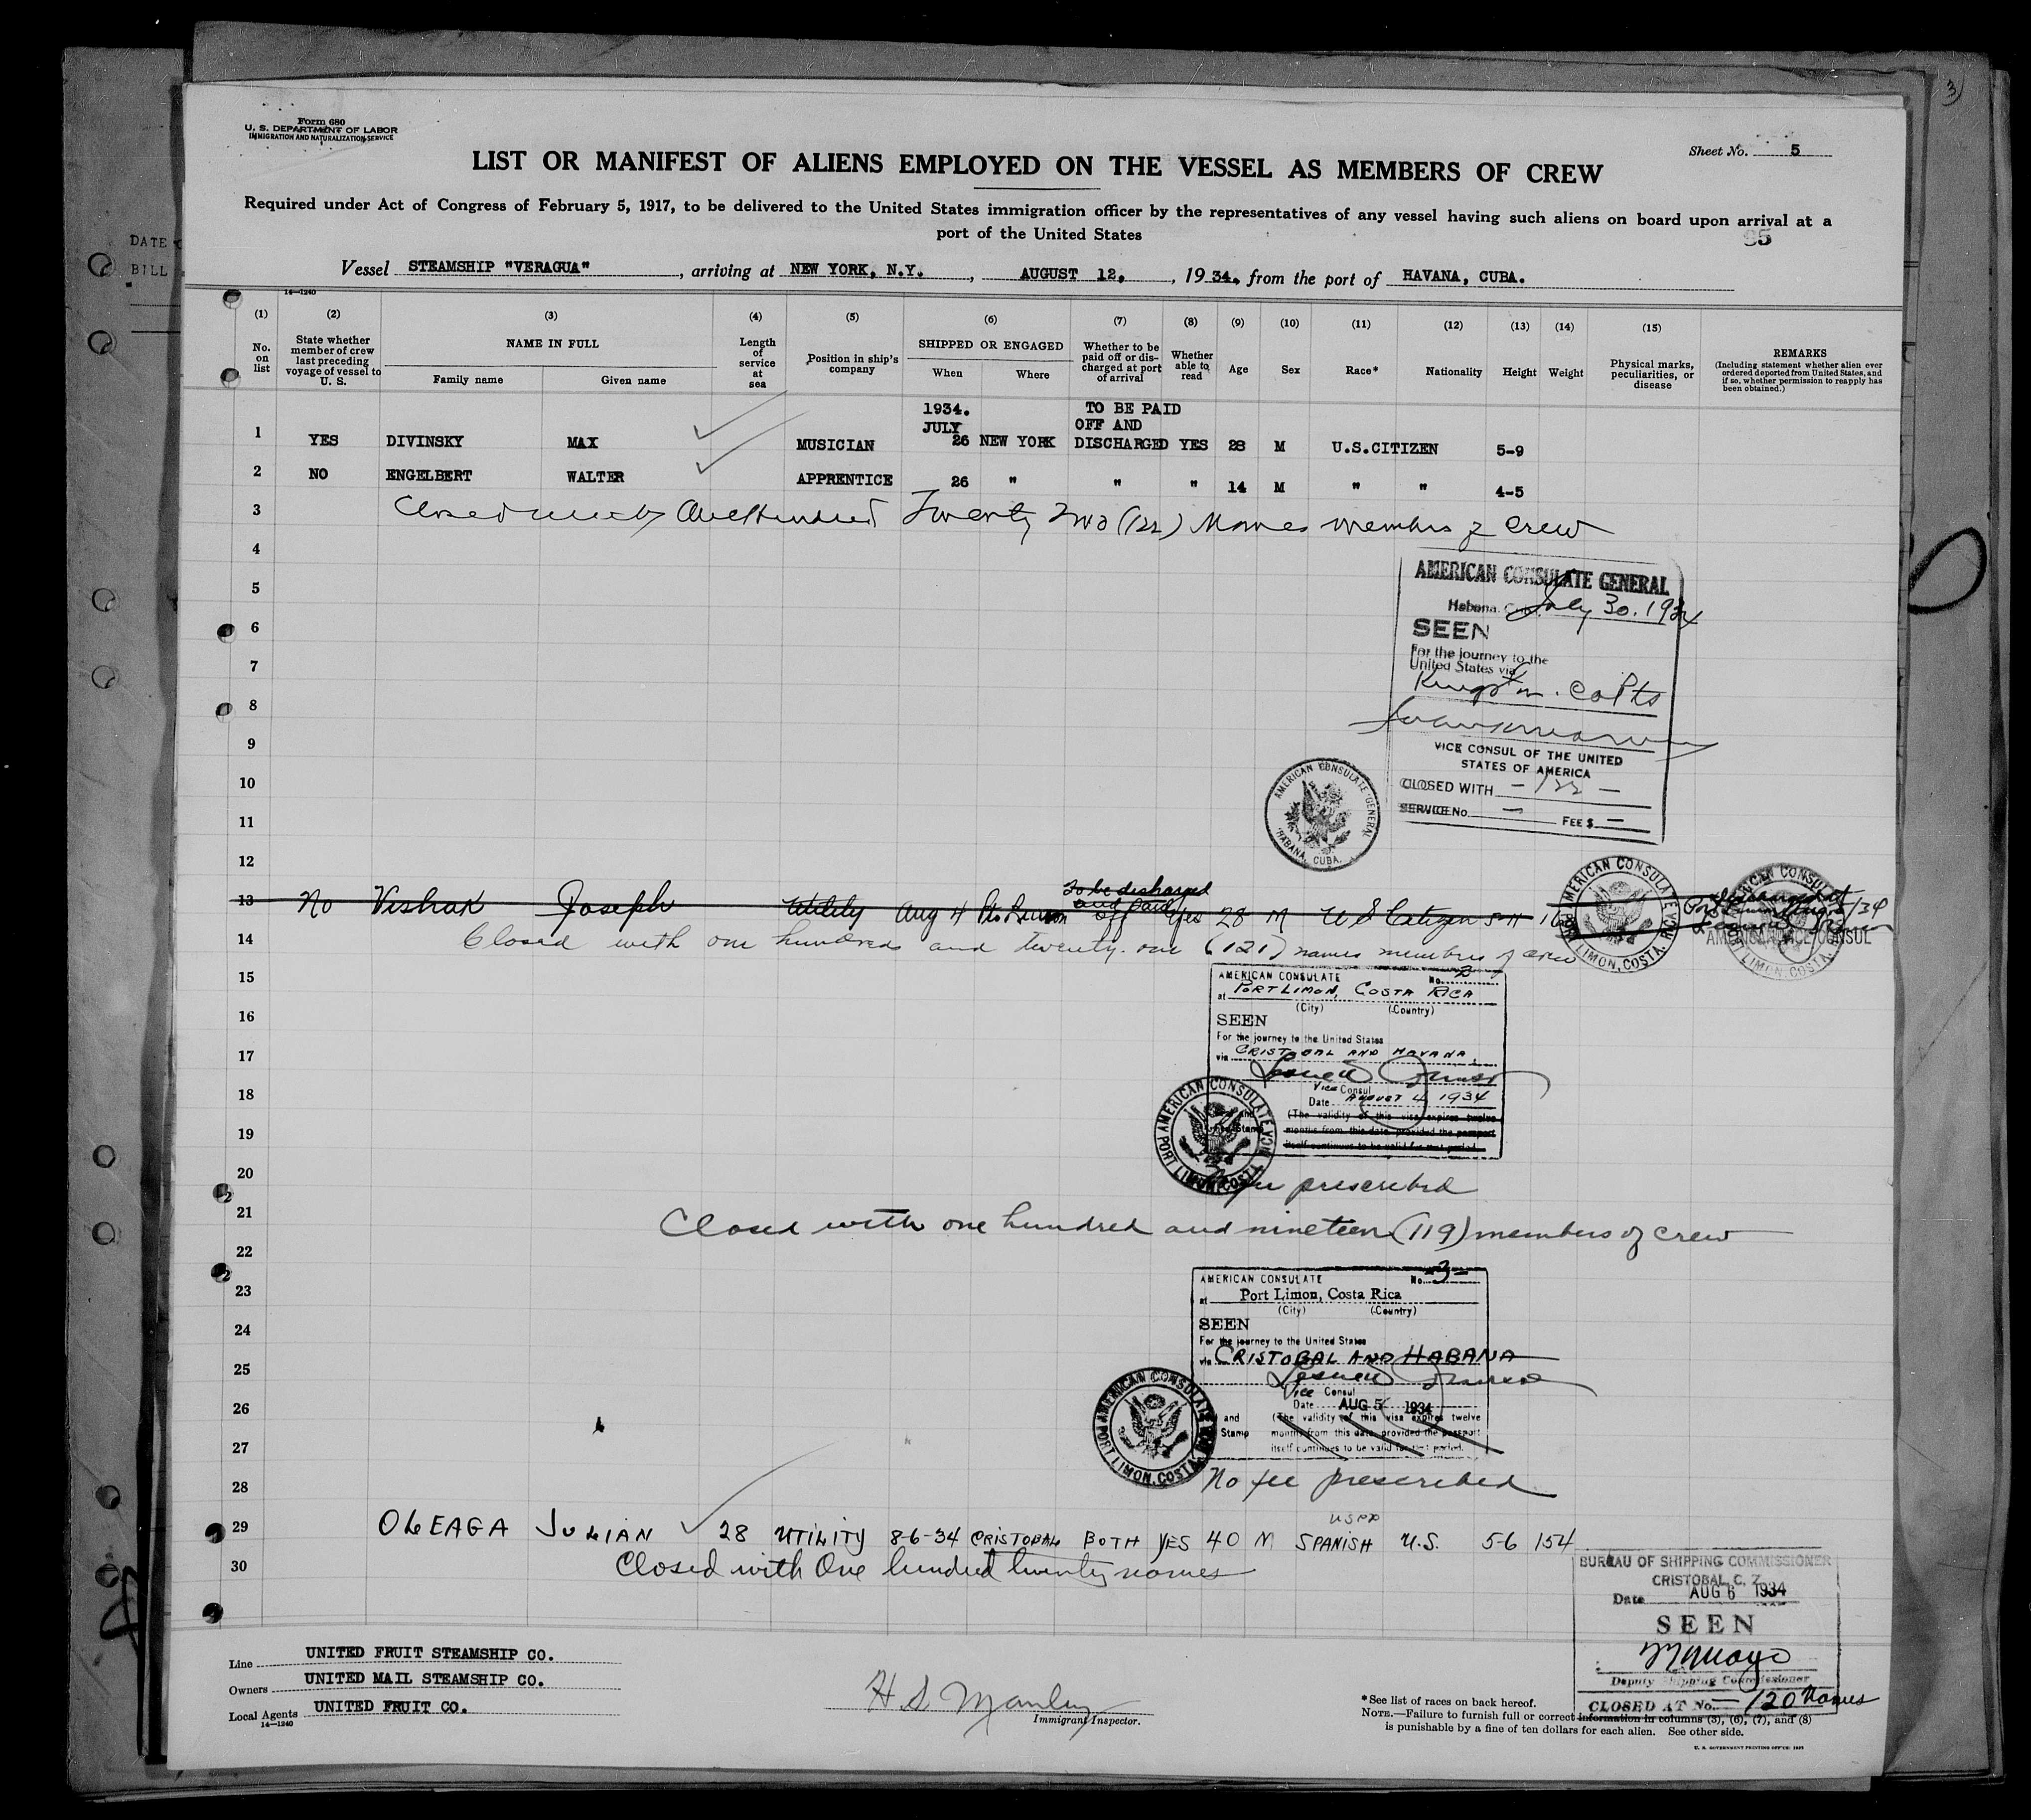 3)
Form 680
U. S. DEPARTMENT OF LABOR
IMMIGRATION AND NATURALIZATION SERVICE
Sheet No. 5
LIST OR MANIFEST OF ALIENS EMPLOYED ON THE VESSEL AS MEMBERS OF CREW
Required under Act of Congress of February 5, 1917, to be delivered to the United States immigration officer by the representatives of any vessel having such aliens on board upon arrival at a
port of the United States
95
DATE
BILL
Vessel STEAMSHIP "VERAGUA", arriving at NEW YORK, N.Y., AUGUST 12, 1934, from the port of HAVANA, CUBA.
14—1240
(1) (2) (3) (4) (5) (6) (7) (8) (9) (10) (11) (12) (13) (14) (15)
No. on list
State whether member of crew last preceding voyage of vessel to U. S.
NAME IN FULL
Family name Given name
Length of service at sea
Position in ship's company
SHIPPED OR ENGAGED
When Where
Whether to be paid off or discharged at port of arrival
Whether able to read
Age Sex Race* Nationality Height Weight
Physical marks, peculiarities, or disease
REMARKS
(Including statement whether alien ever ordered deported from United States, and if so, whether permission to reapply has been obtained.)
1934. TO BE PAID
JULY OFF AND
1 YES DIVINSKY MAX MUSICIAN 26 NEW YORK DISCHARGED YES 28 M U.S.CITIZEN 5-9
2 NO ENGELBERT WALTER APPRENTICE 26 " " " 14 M " " 4-5
3 Closed with One Hundred Twenty Two (122) Names members of Crew
4
AMERICAN CONSULATE GENERAL
5
Habana, July 30, 1934
6
SEEN
For the journey to the
7
United States via
Kingston.
8
9
VICE CONSUL OF THE UNITED
STATES OF AMERICA
10
CLOSED WITH - 122 -
SERVICE No. — FEE $ —
AMERICAN CONSULATE GENERAL
HABANA, CUBA.
11
12
To be discharged
and paid
13 No Vishak Joseph Utility Aug 4 off Yes 28 M U S Citizen 5-11
AMERICAN CONSULATE
PORT LIMON, COSTA RICA
AMERICAN VICE CONSUL
14 Closed with one hundred and twenty-one (121) names members of crew
15
AMERICAN CONSULATE No. 2
at PORT LIMON, COSTA RICA
(City) (Country)
16
SEEN
For the journey to the United States
17
via CRISTOBAL AND HAVANA.
Vice Consul
18
Date AUGUST 4, 1934
(The validity of this visa expires twelve
19
months from this date provided the passport
itself continues to be valid for that period.
AMERICAN CONSULATE
PORT LIMON, COSTA RICA
20
No fee prescribed
21 Closed with one hundred and nineteen (119) members of crew
22
AMERICAN CONSULATE No. 3-
23
at Port Limon, Costa Rica
(City) (Country)
24
SEEN
For the journey to the United States
25
via CRISTOBAL AND HABANA
Vice Consul
26
Date AUG 5 1934
and (The validity of this visa expires twelve
27
Stamp months from this date provided the passport
itself continues to be valid for that period.
AMERICAN CONSULATE
PORT LIMON, COSTA RICA
28
No fee prescribed
29 OLEAGA JULIAN 28 UTILITY 8-6-34 CRISTOBAL BOTH YES 40 M SPANISH U.S. 5-6 154
30 Closed with One hundred twenty names
BUREAU OF SHIPPING COMMISSIONER
CRISTOBAL, C. Z.
Date AUG 6 1934
SEEN
Deputy Shipping Commissioner
CLOSED AT No. — 120 Names
Line UNITED FRUIT STEAMSHIP CO.
Owners UNITED MAIL STEAMSHIP CO.
Local Agents UNITED FRUIT CO.
14—1240
H S Manley
Immigrant Inspector.
*See list of races on back hereof.
NOTE.—Failure to furnish full or correct information in columns (3), (6), (7), and (8)
is punishable by a fine of ten dollars for each alien. See other side.
U. S. GOVERNMENT PRINTING OFFICE: